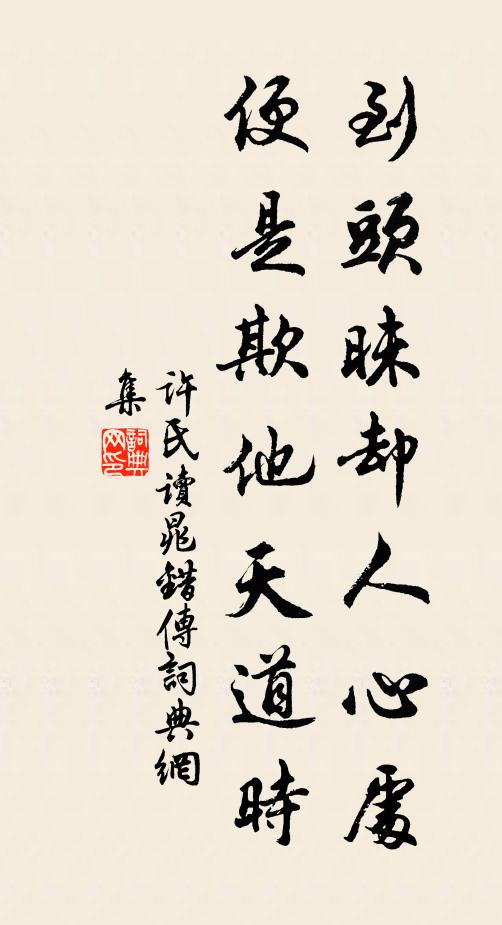 到頭昧却人心處
便是欺他天道時
許氏讀晁錯傳詞典網
集
詞典
网印